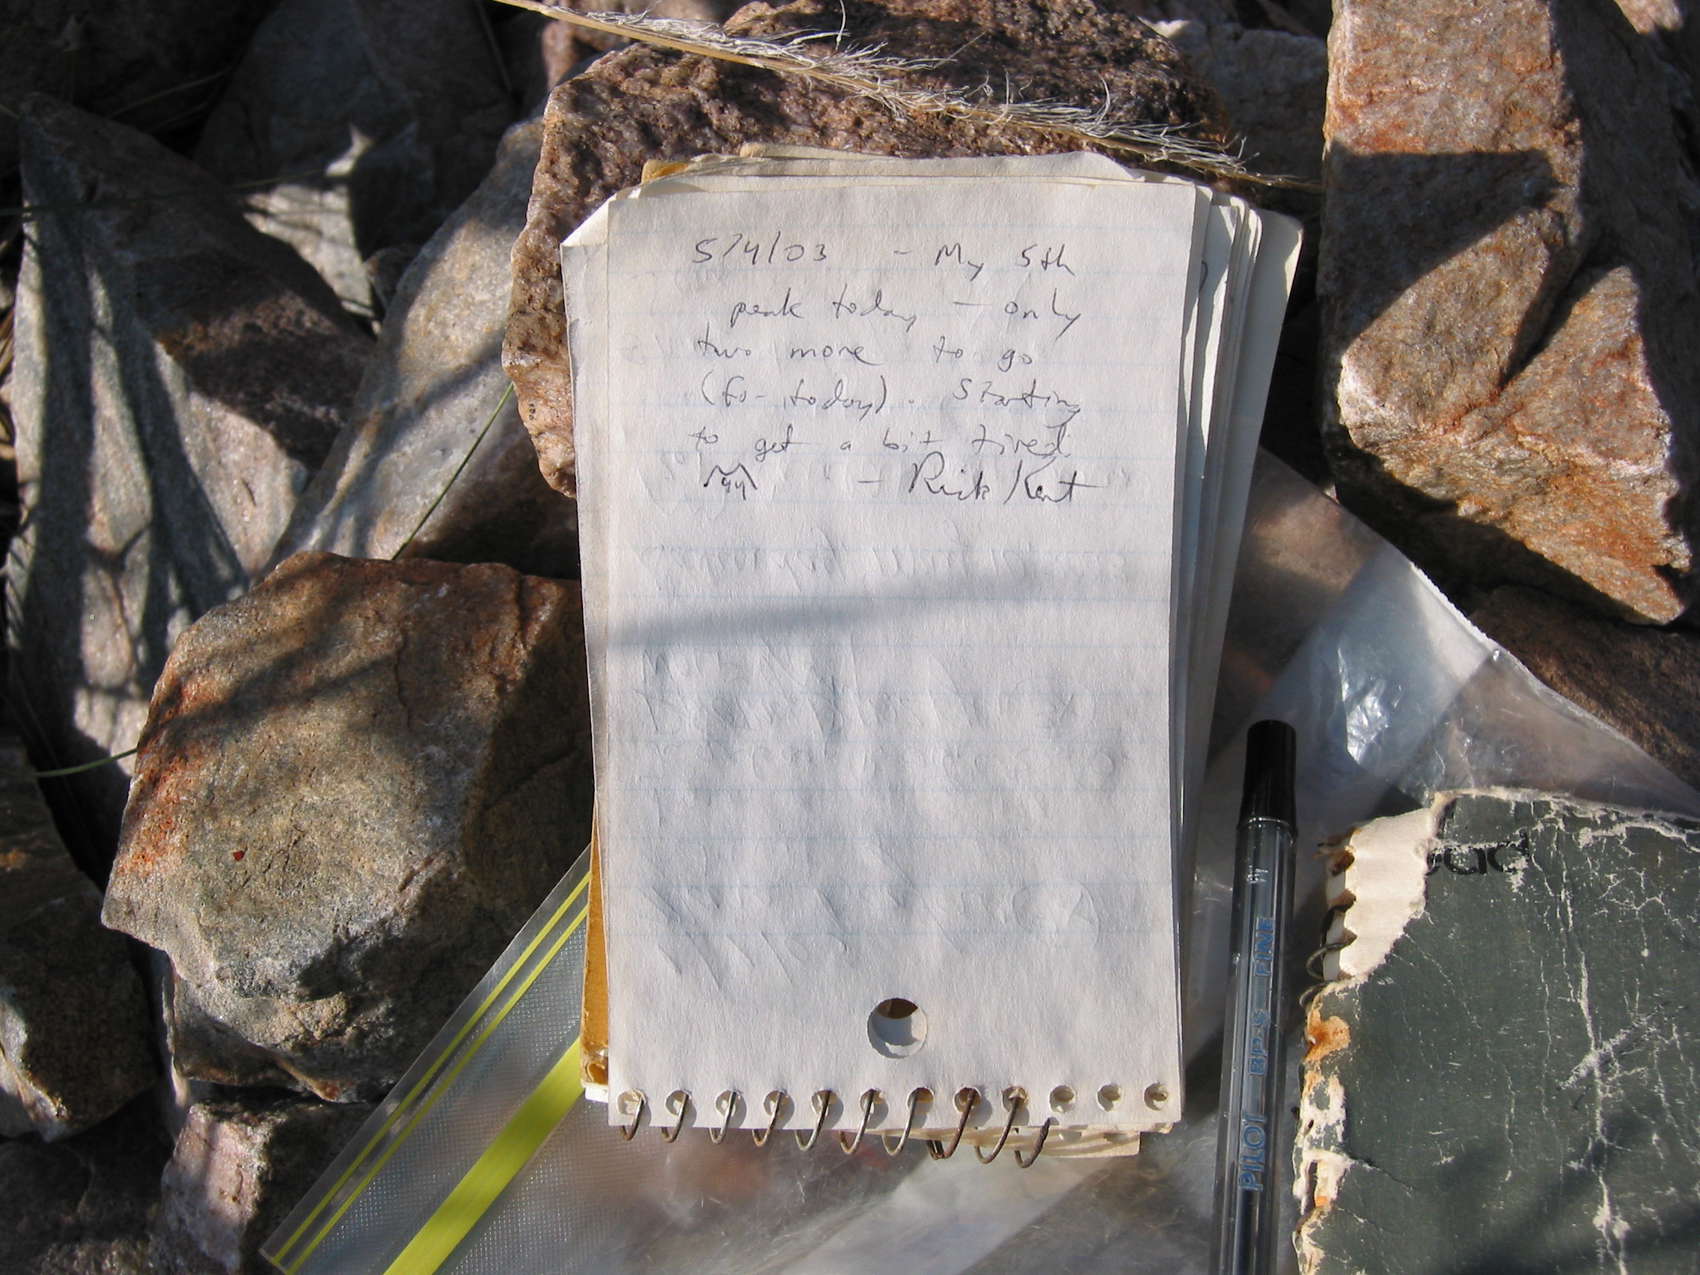 5/4/03 - My 5th
peak today - only
two more to go
(for today). Starting
to get a bit tired.
- Rick Kent
PILOT BPS FINE